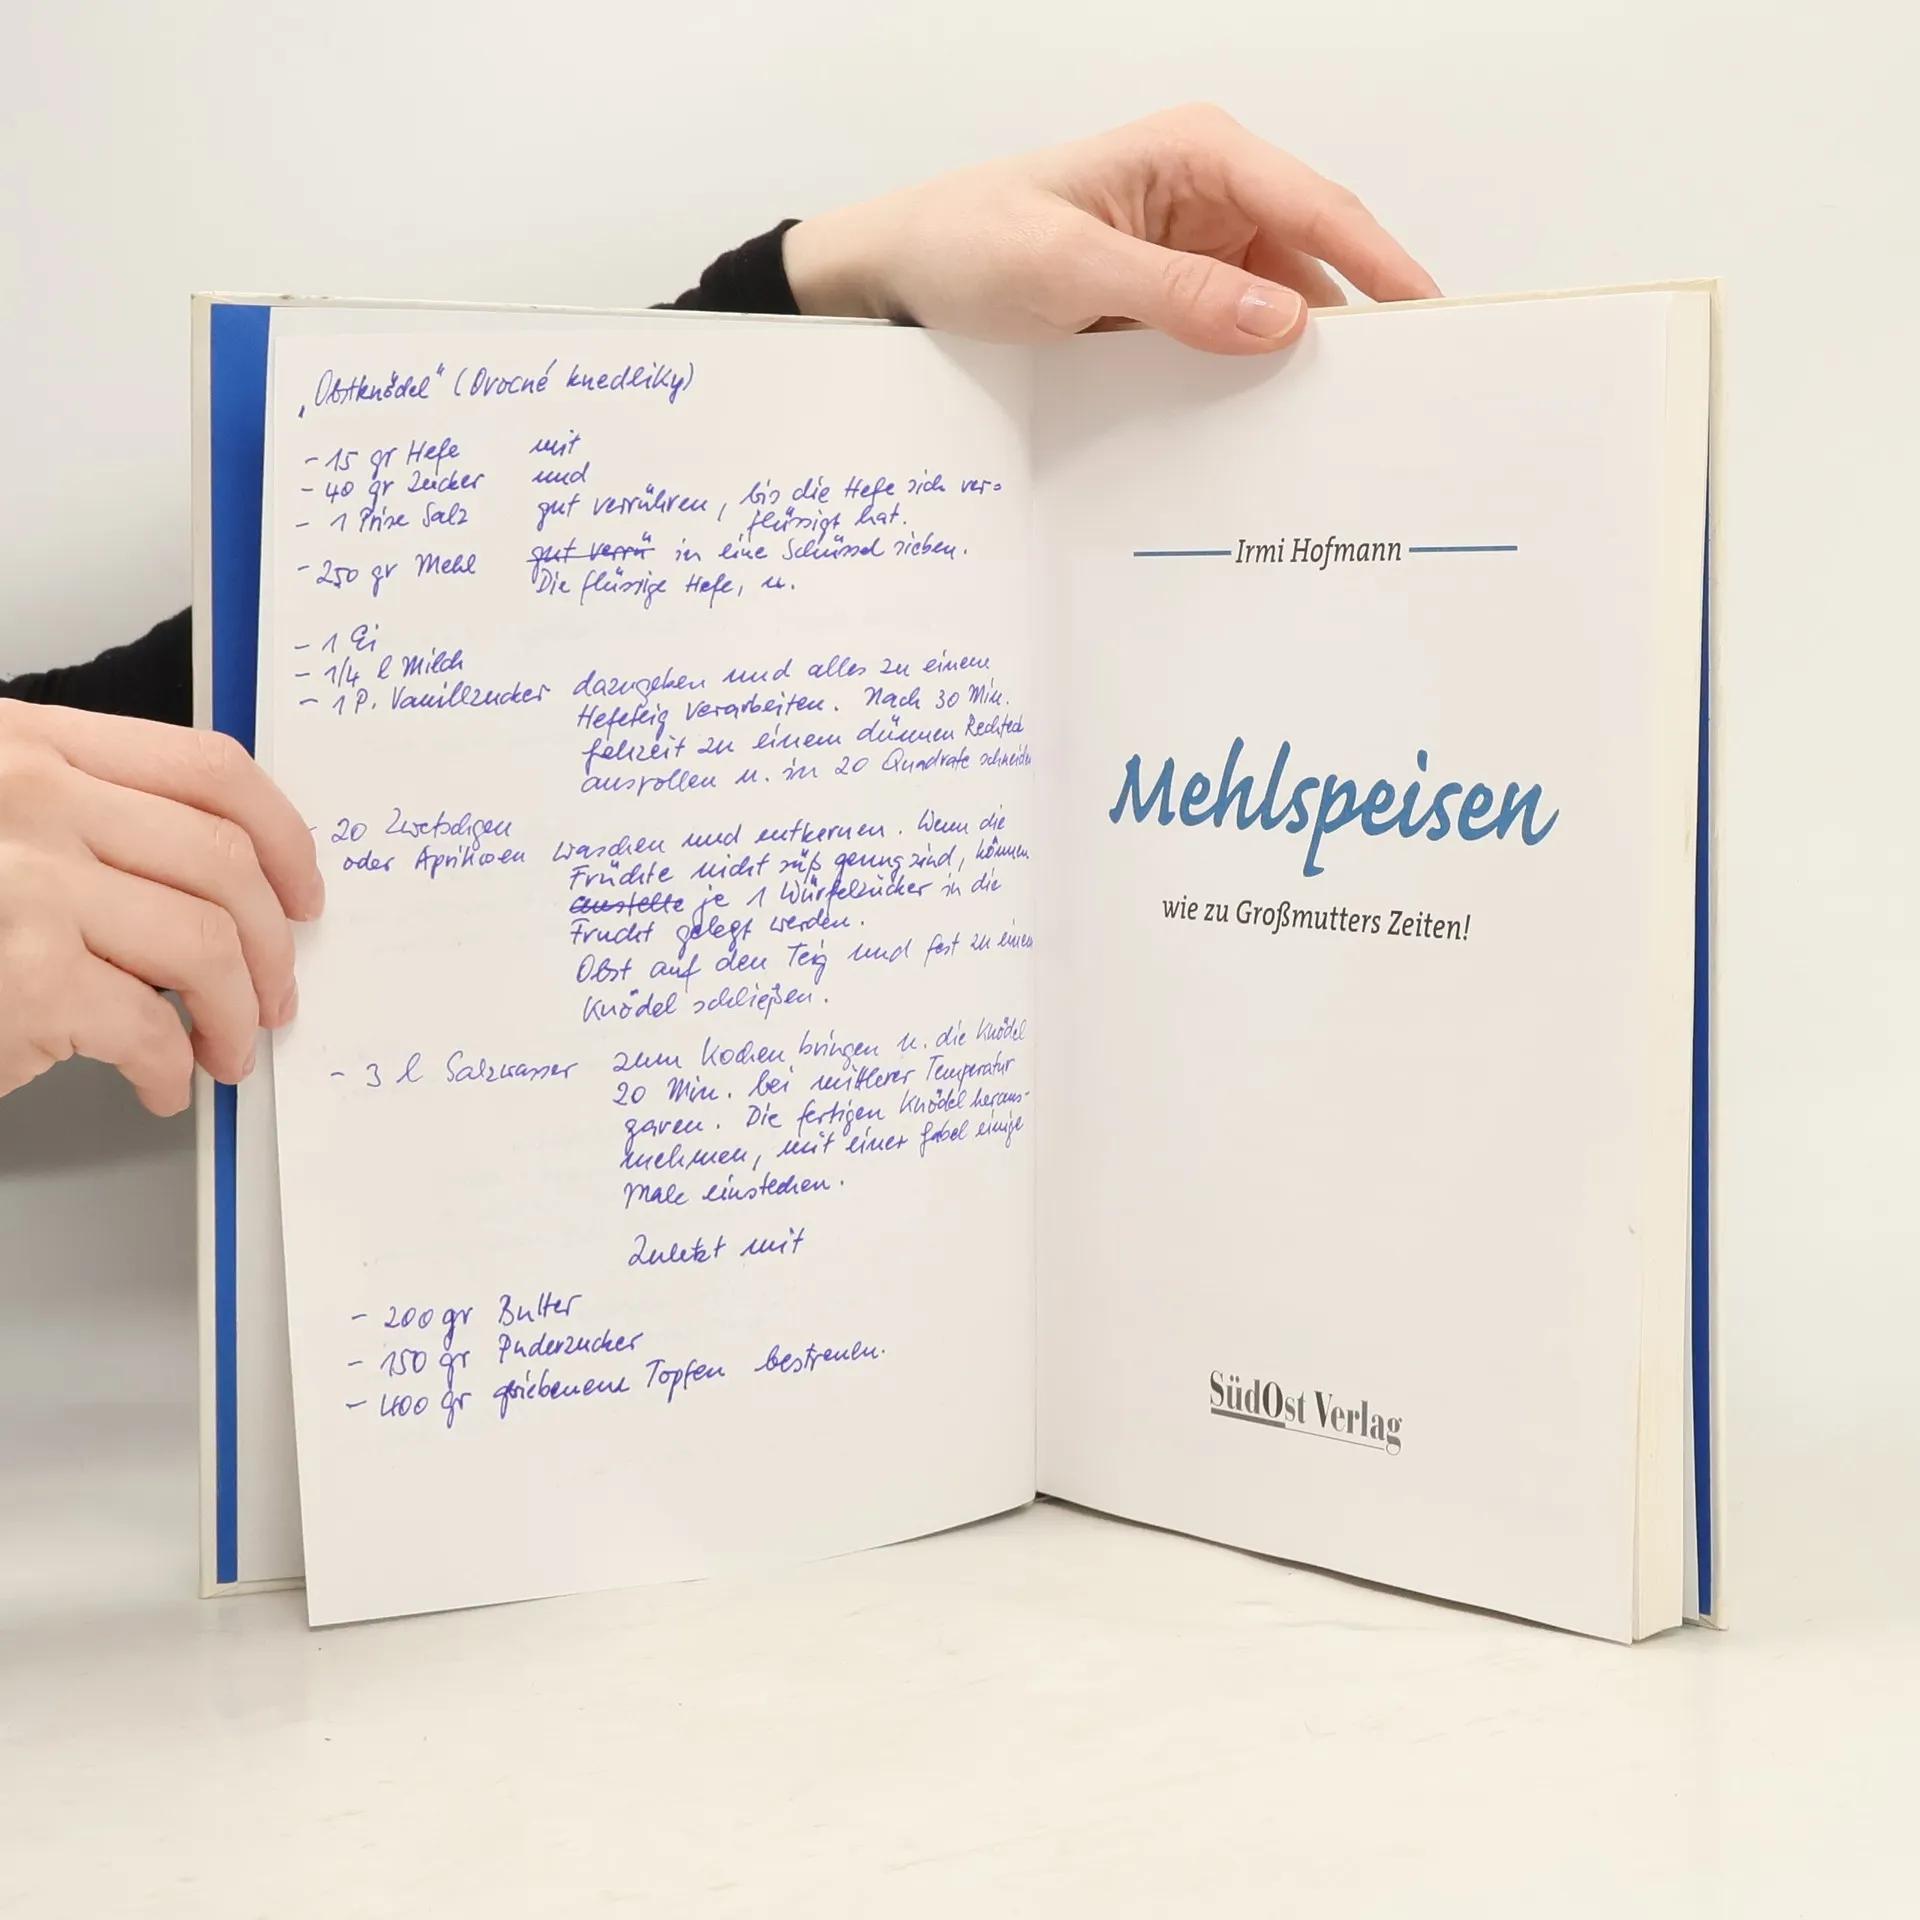 „Obstknödel" (Ovocné knedlíky)
- 15 gr Hefe mit
- 40 gr Zucker und
- 1 Prise Salz gut verrühren, bis die Hefe sich ver=
flüssigt hat.
- 250 gr Mehl gut verrü in eine Schüssel sieben.
Die flüssige Hefe, u.
- 1 Ei
- 1/4 l Milch
- 1 P. Vanillzucker dazugeben und alles zu einem
Hefeteig verarbeiten. Nach 30 Min.
Gehzeit zu einem dünnen Rechteck
ausrollen u. in 20 Quadrate schneiden
- 20 Zwetschgen
oder Aprikosen waschen und entkernen. Wenn die
Früchte nicht süß genug sind, können
anstelle je 1 Würfelzucker in die
Frucht gelegt werden.
Obst auf den Teig und fest zu einem
Knödel schließen.
- 3 l Salzwasser zum Kochen bringen u. die Knödel
20 Min. bei mittlerer Temperatur
garen. Die fertigen Knödel heraus-
nehmen, mit einer Gabel einige
Male einstechen.
Zuletzt mit
- 200 gr Butter
- 150 gr Puderzucker
- 400 gr geriebenem Topfen bestreuen.
Irmi Hofmann
Mehlspeisen
wie zu Großmutters Zeiten!
SüdOst Verlag